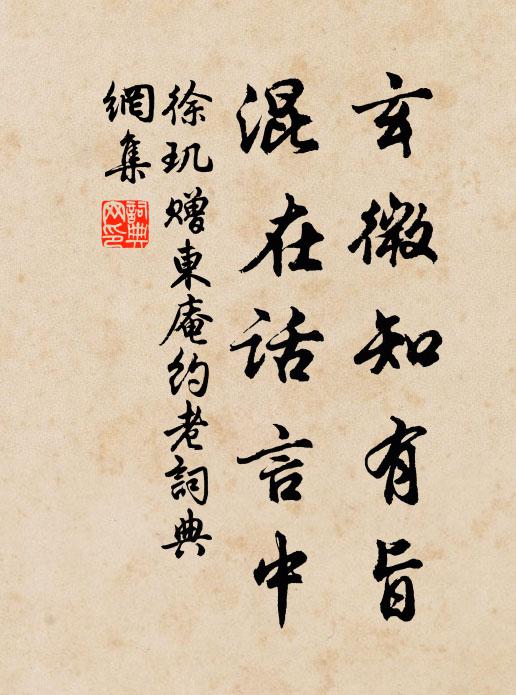 玄微知有旨
混在話言中
徐玑赠東庵约老詞典
網集
詞典
网印